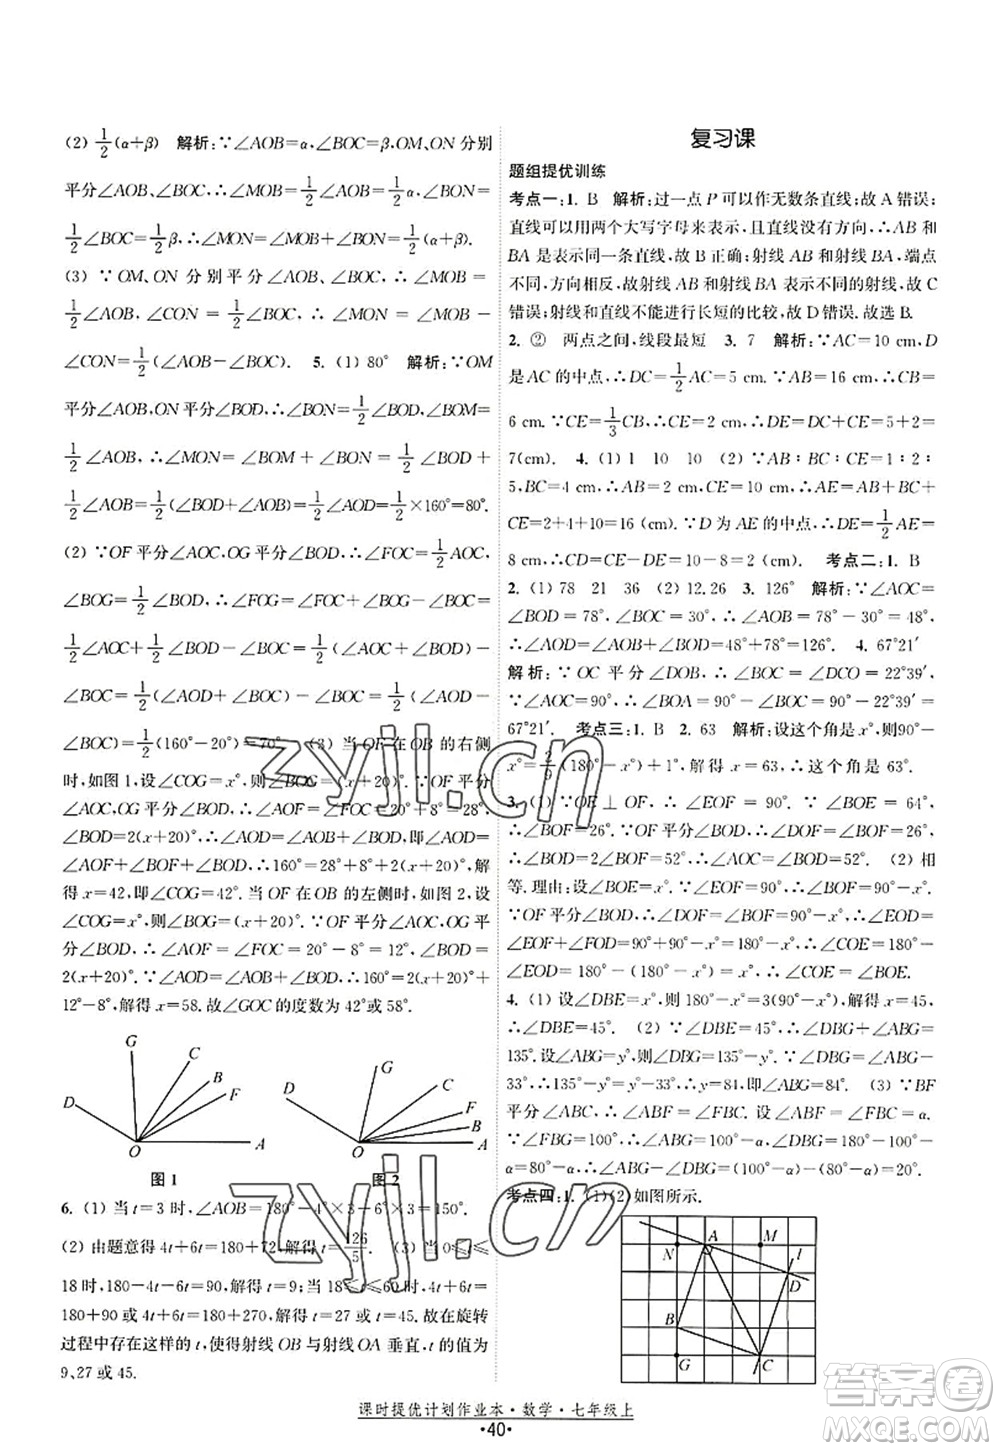 (2) 1/2(α+β) 解析:∵∠AOB=α,∠BOC=β,OM、ON 分别
平分∠AOB、∠BOC,∴∠MOB=1/2∠AOB=1/2α,∠BON=
1/2∠BOC=1/2β,∴∠MON=∠MOB+∠BON=1/2(α+β).
(3) ∵OM、ON 分别平分∠AOB、∠BOC,∴∠MOB=
1/2∠AOB,∠CON=1/2∠BOC,∴∠MON=∠MOB-
∠CON=1/2(∠AOB-∠BOC). 5. (1) 80° 解析:∵OM
平分∠AOB,ON 平分∠BOD,∴∠BON=1/2∠BOD,∠BOM=
1/2∠AOB,∴∠MON=∠BOM+∠BON=1/2∠BOD+
1/2∠AOB=1/2(∠BOD+∠AOB)=1/2∠AOD=1/2×160°=80°.
(2) ∵OF 平分∠AOC,OG 平分∠BOD,∴∠FOC=1/2∠AOC,
∠BOG=1/2∠BOD,∴∠FOG=∠FOC+∠BOG-∠BOC=
1/2∠AOC+1/2∠BOD-∠BOC=1/2(∠AOC+∠BOD)-
∠BOC=1/2(∠AOD+∠BOC)-∠BOC=1/2(∠AOD-
∠BOC)=1/2(160°-20°)=70°. (3) 当 OF 在 OB 的右侧
时,如图 1,设∠COG=x°,则∠BOG=(x+20)°.∵OF 平分
∠AOC,OG 平分∠BOD,∴∠AOF=∠FOC=20°+8°=28°,
∠BOD=2(x+20)°.∵∠AOD=∠AOB+∠BOD,即∠AOD=
∠AOF+∠BOF+∠BOD,∴160°=28°+8°+2(x+20)°,解
得 x=42,即∠COG=42°.当 OF 在 OB 的左侧时,如图 2,设
∠COG=x°,则∠BOG=(x+20)°.∵OF 平分∠AOC、OG 平
分∠BOD,∴∠AOF=∠FOC=20°-8°=12°,∠BOD=
2(x+20)°.∵∠AOD=∠AOB+∠BOD,∴160°=2(x+20)°+
12°-8°,解得 x=58.故∠GOC 的度数为 42°或 58°.
G C B F D O A
G C F B D O A
图 1 图 2
6. (1) 当 t=3 时,∠AOB=180°-4°×3-6°×3=150°.
(2) 由题意得 4t+6t=180+72,解得 t=126/5. (3) 当 0≤t≤
18 时,180-4t-6t=90,解得 t=9;当 18≤t≤60 时,4t+6t=
180+90 或 4t+6t=180+270,解得 t=27 或 t=45.故在旋转
过程中存在这样的 t,使得射线 OB 与射线 OA 垂直,t 的值为
9、27 或 45.
复习课
题组提优训练
考点一:1. B 解析:过一点 P 可以作无数条直线;故 A 错误;
直线可以用两个大写字母来表示,且直线没有方向,∴AB 和
BA 是表示同一条直线;故 B 正确;射线 AB 和射线 BA,端点
不同,方向相反,故射线 AB 和射线 BA 表示不同的射线,故 C
错误;射线和直线不能进行长短的比较,故 D 错误.故选 B.
2. ② 两点之间,线段最短 3. 7 解析:∵AC=10 cm,D
是 AC 的中点,∴DC=1/2AC=5 cm.∵AB=16 cm,∴CB=
6 cm.∵CE=1/3CB,∴CE=2 cm,∴DE=DC+CE=5+2=
7(cm). 4. (1) 1 10 10 (2) ∵AB∶BC∶CE=1∶2∶
5,BC=4 cm,∴AB=2 cm,CE=10 cm,∴AE=AB+BC+
CE=2+4+10=16(cm).∵D 为 AE 的中点,∴DE=1/2AE=
8 cm,∴CD=CE-DE=10-8=2(cm). 考点二:1. B
2. (1) 78 21 36 (2) 12.26 3. 126° 解析:∵∠AOC=
∠BOD=78°,∠BOC=30°,∴∠AOB=78°-30°=48°,
∴∠AOD=∠AOB+∠BOD=48°+78°=126°. 4. 67°21′
解析:∵OC 平分∠DOB,∴∠BOC=∠DCO=22°39′,
∵∠AOC=90°,∴∠BOA=90°-∠BOC=90°-22°39′=
67°21′. 考点三:1. B 2. 63 解析:设这个角是 x°,则90°-
x°=2/9(180°-x°)+1°,解得 x=63,∴这个角是 63°.
3. (1) ∵OE⊥OF,∴∠EOF=90°.∵∠BOE=64°,
∴∠BOF=26°.∵OF 平分∠BOD,∴∠DOF=∠BOF=26°,
∴∠BOD=52°,∴∠AOC=∠BOD=52°. (2) 相
等.理由:设∠BOE=x°,∵∠EOF=90°,∴∠BOF=90°-x°.
∵OF平分∠BOD,∴∠DOF=∠BOF=90°-x°,∴∠EOD=
∠EOF+∠DOF=90°+90°-x°=180°-x°,∴∠COE=180°-
∠EOD=180°-(180°-x°)=x°,∴∠COE=∠BOE.
4. (1) 设∠DBE=x°,则 180°-x°=3(90°-x°),解得 x=45,
∴∠DBE=45°. (2) ∵∠DBE=45°,∴∠DBG+∠ABG=
135°.设∠ABG=y°,则∠DBG=y°-33°,∴y°-33°+y°=
135°-y°=y°-33°,解得 y=84,即∠ABG=84°. (3) ∵BF
平分∠ABC,∴∠ABF=∠FBC.设∠ABF=∠FBC=α.
∵∠GBF=100°,∴∠ABG=100°-α,∠GBC=100°+
α=80°-α,∴∠ABF-∠DBG=α-(80°-α)=20°.
考点四:1. (1)(2)如图所示.
A M N l D B G C
课时提优计划作业本·数学·七年级上
·40·
zyjl.cn
zyjl.cn
答案圈
MXQE.COM